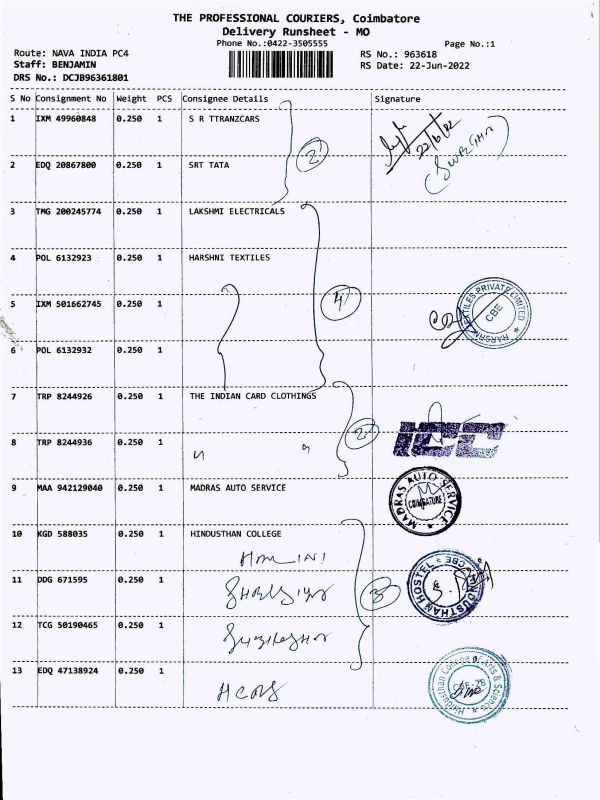 THE PROFESSIONAL COURIERS, Coimbatore
Delivery Runsheet - MO
Phone No.:0422-3505555
Page No.:1
Route: NAVA INDIA PC4
RS No.: 963618
Staff: BENJAMIN
RS Date: 22-Jun-2022
DRS No.: DCJB96361801
S No Consignment No Weight PCS Consignee Details Signature
1 IXM 49960848 0.250 1 S R TTRANZCARS
22/6/22
2
2 EDQ 20867800 0.250 1 SRT TATA
3 TMG 200245774 0.250 1 LAKSHMI ELECTRICALS
4 POL 6132923 0.250 1 HARSHNI TEXTILES
4
5 IXM 501662745 0.250 1
HARSHNI TEXTILES PRIVATE LIMITED
CBE
6 POL 6132932 0.250 1
7 TRP 8244926 0.250 1 THE INDIAN CARD CLOTHINGS
2
ICC
8 TRP 8244936 0.250 1 "
9 MAA 942129040 0.250 1 MADRAS AUTO SERVICE
MADRAS AUTO SERVICE
COIMBATORE
10 KGD 588035 0.250 1 HINDUSTHAN COLLEGE
11 DDG 671595 0.250 1
3
HINDUSTHAN HOSTEL
CBE
12 TCG 50190465 0.250 1
13 EDQ 47138924 0.250 1
HCAS
Hindusthan College of Arts & Science
CBE-28